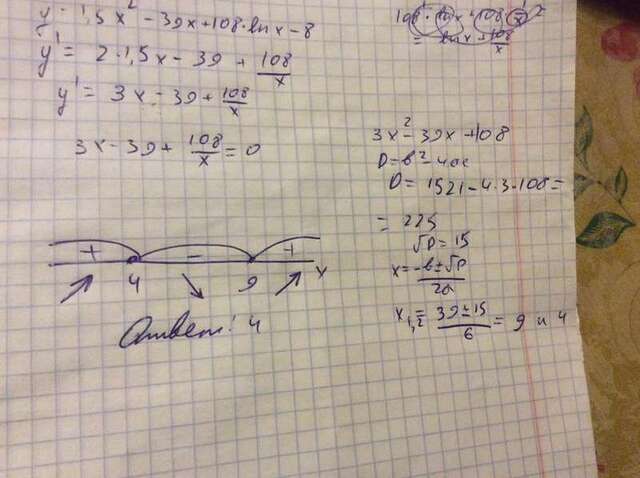 y = 1,5x² - 39x + 108·ln x - 8
y' = 2·1,5x - 39 + 108/x
y' = 3x - 39 + 108/x
3x - 39 + 108/x = 0
+ - +
4 9 x
Ответ: 4
= ln x + 108/x
3x² - 39x + 108
D = b² - 4ac
D = 1521 - 4·3·108 =
= 225
√D = 15
x = -b ± √D / 2a
x₁,₂ = 39 ± 15 / 6 = 9 и 4